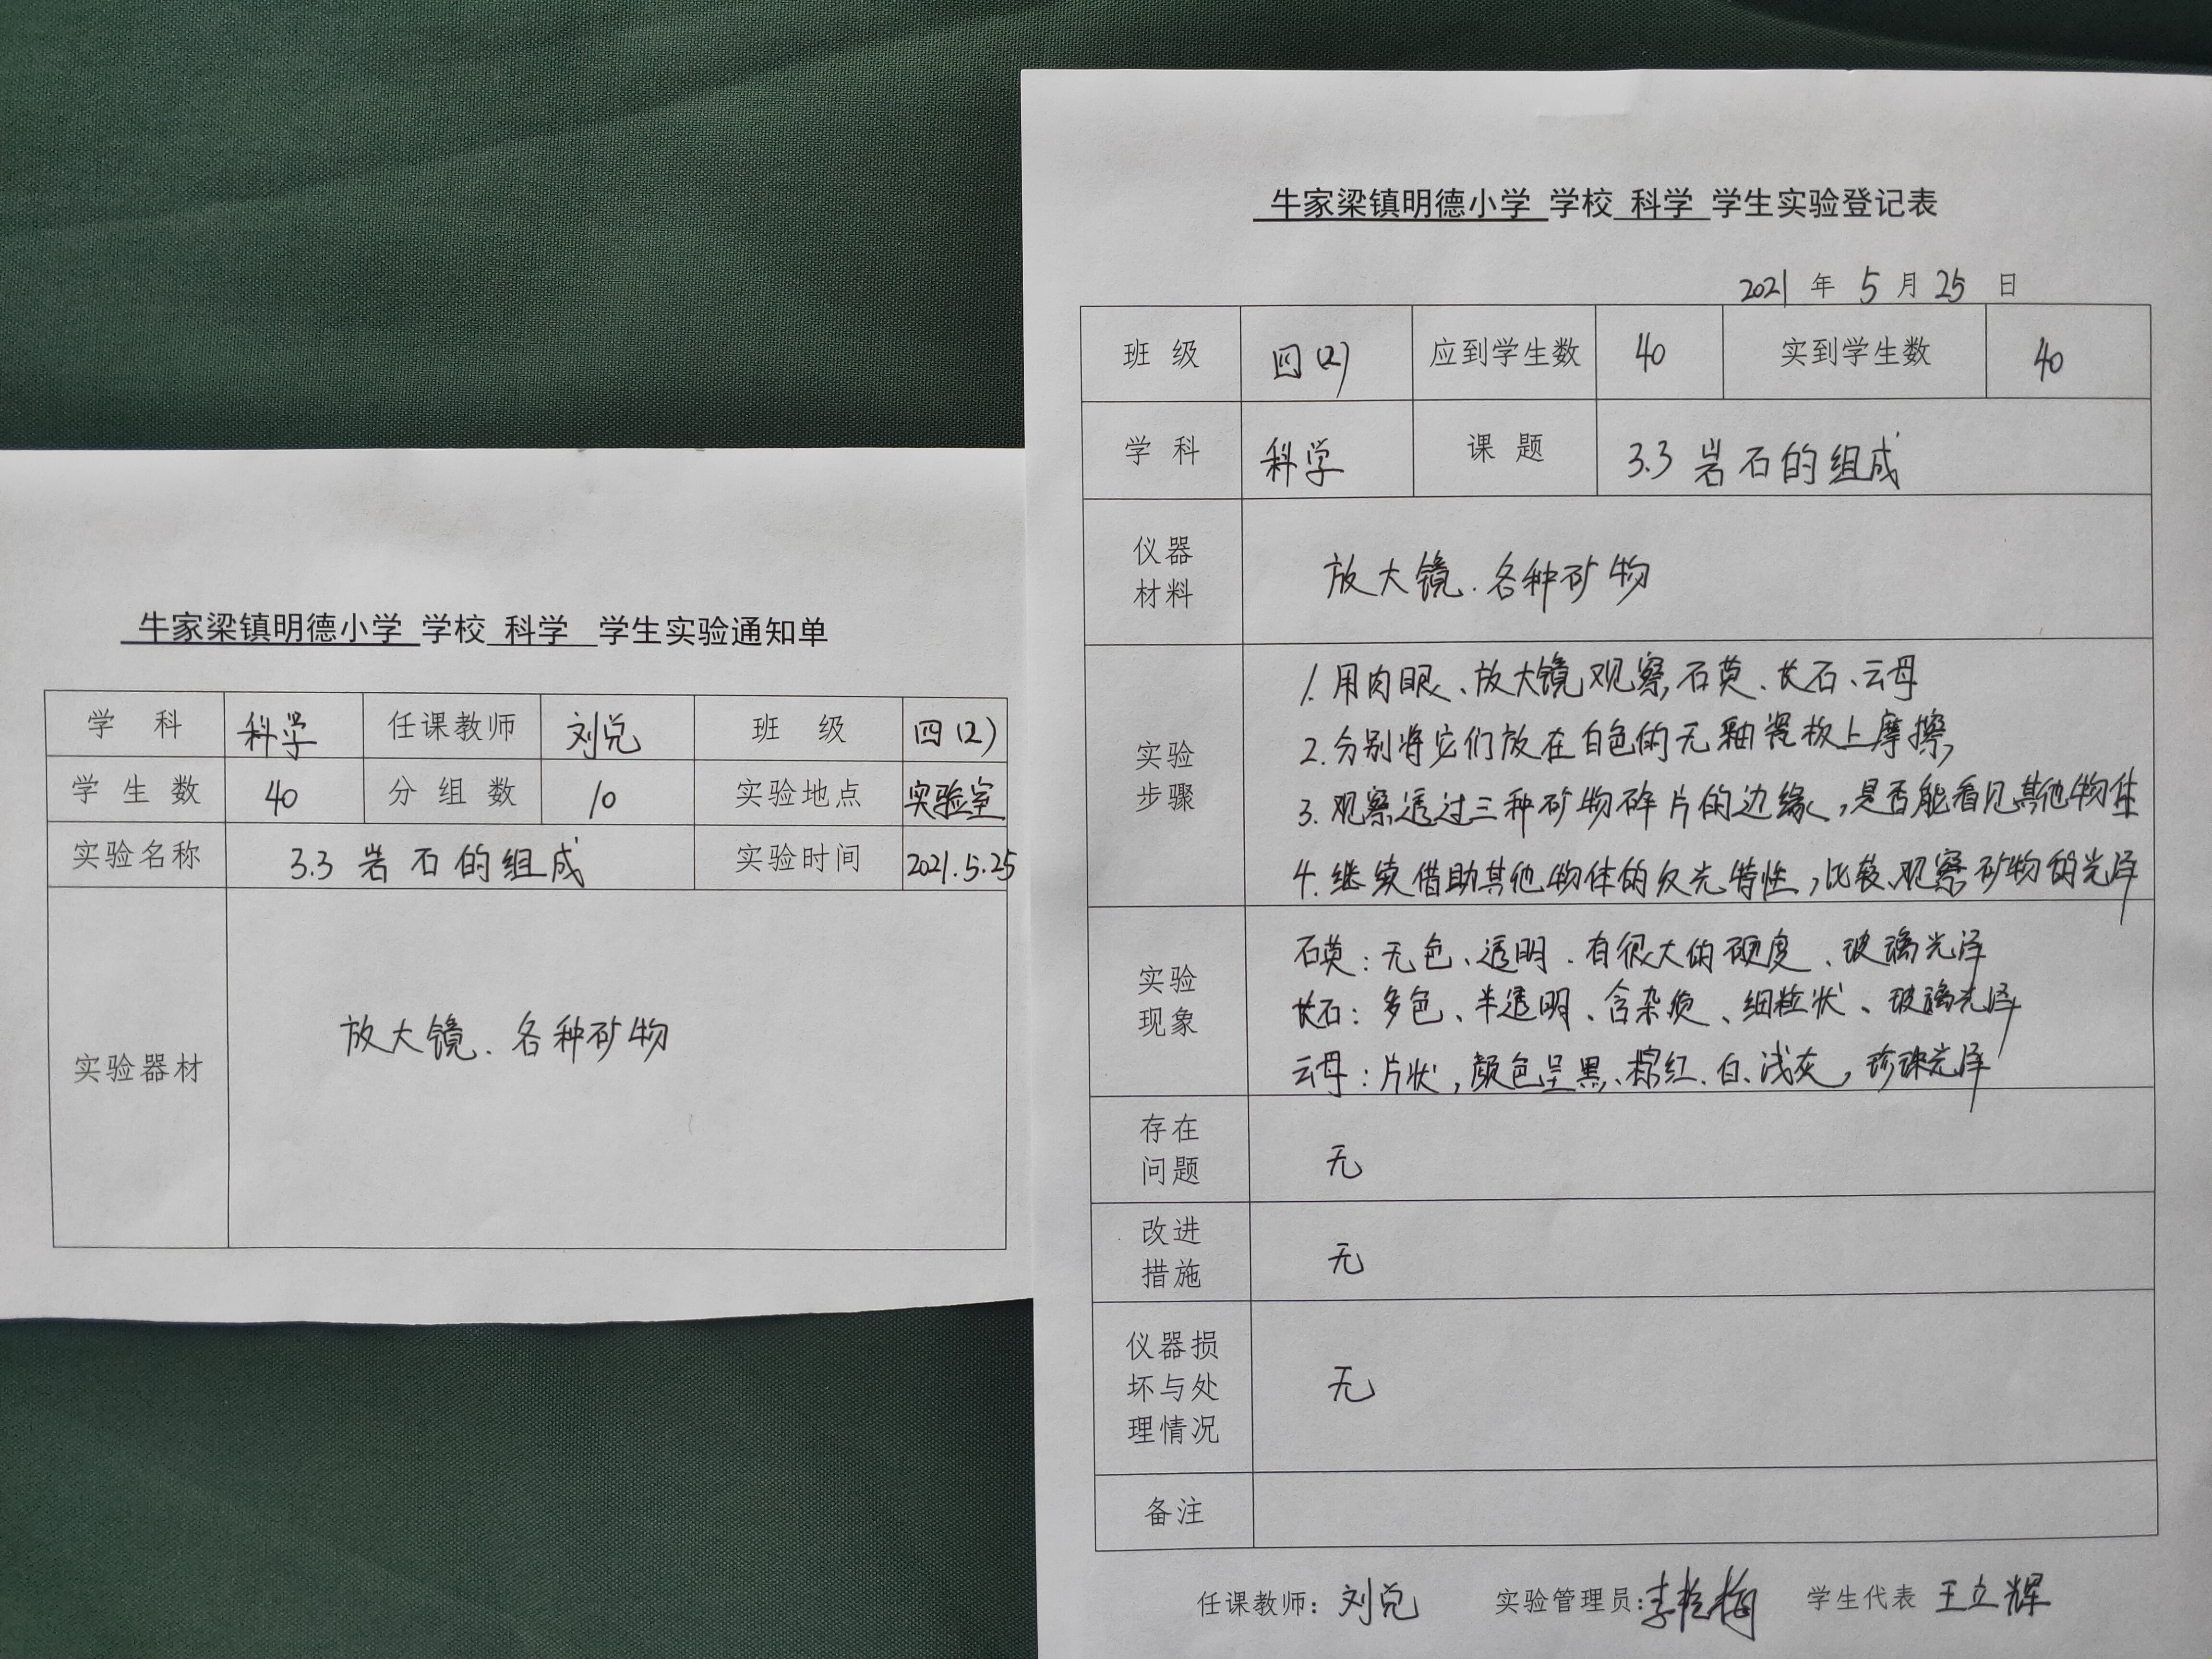 牛家梁镇明德小学 学校 科学 学生实验通知单
学 科 科学 任课教师 刘兑 班 级 四(2)
学 生 数 40 分 组 数 10 实验地点 实验室
实验名称 3.3 岩石的组成 实验时间 2021.5.25
实验器材 放大镜、各种矿物
牛家梁镇明德小学 学校 科学 学生实验登记表
2021 年 5 月 25 日
班 级 四(2) 应到学生数 40 实到学生数 40
学 科 科学 课 题 3.3 岩石的组成
仪器
材料
放大镜、各种矿物
实验
步骤
1. 用肉眼、放大镜观察,石英、长石、云母
2. 分别将它们放在白色的无釉瓷板上摩擦,
3. 观察透过三种矿物碎片的边缘,是否能看见其他物体
4. 继续借助其他物体的反光特性,比较、观察矿物的光泽
实验
现象
石英:无色、透明、有很大的硬度、玻璃光泽
长石:多色、半透明、含杂质、细粒状、玻璃光泽
云母:片状,颜色呈黑、棕红、白、浅灰,珍珠光泽
存在
问题
无
改进
措施
无
仪器损
坏与处
理情况
无
备注
任课教师:刘兑 实验管理员:李 梅 学生代表 王立辉